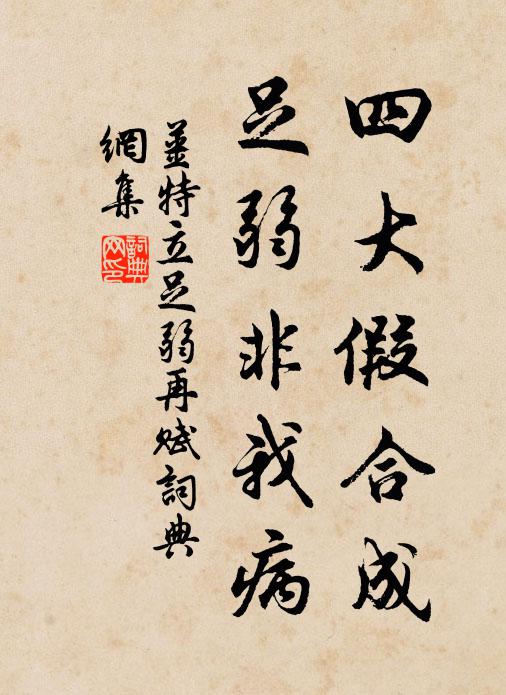 四大假合成
足弱非我病
姜特立足弱再赋詞典
網集
詞典网印